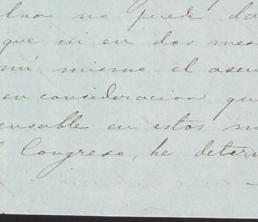 no puede da
que ni en dos mes
mi mismo el asun
en consideracion qu
ensable en estos m
l Congreso, he determ